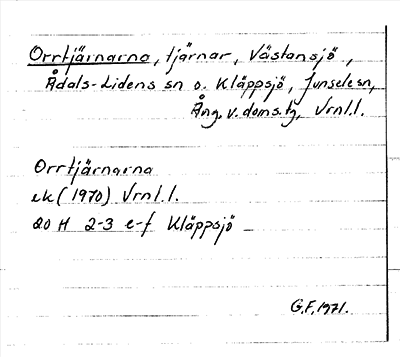 Orrtjärnarna, tjärnar, Västansjö,
Ådals-Lidens sn o. Kläppsjö, Junsele sn,
Ång. v. doms.tg, Vrnl.l.
Orrtjärnarna
ek (1970) Vrnl.l.
20 H 2-3 e-f Kläppsjö
G.F. 1971.